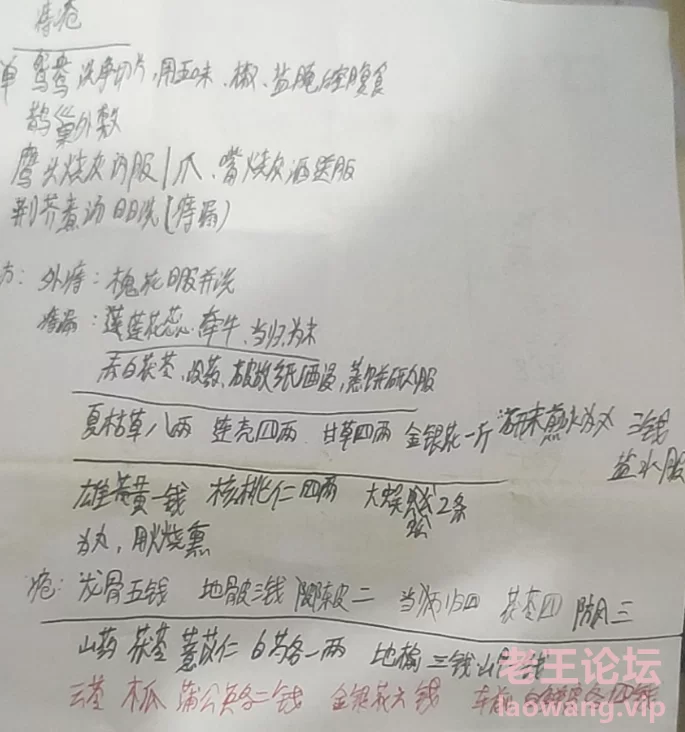 痔疮
单 鸳鸯洗净切片,用五味、椒、盐腌,空腹食
鹊巢外敷
鹰头烧灰 服/爪、嘴烧灰酒送服
荆芥煮汤日日洗(痔漏)
方:外痔:槐花日服并洗
痔漏:莲花蕊、牵牛、当归为末
赤白茯苓、没药、破故纸酒浸,蒸饼研服
夏枯草八两 连壳四两 甘草四两 金银花一斤 研末煎水为丸 三钱
盐水服
雄黄一钱 核桃仁四两 大 2条
为丸,用火烧熏
疮:龙骨五钱 地骨皮三钱 陈皮二 当归四 茯苓四 防风三
山药 茯苓 薏苡仁 白芍各一两 地榆三钱
木瓜 蒲公英各二钱 金银花六钱 车前 各四钱
老王论坛
laowang.vip